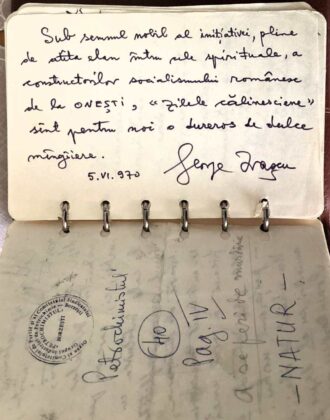 Sub semnul nobil al inițiativei, pline
de atîta elan întru cele spirituale, a
constructorilor socialismului românesc
de la ONEȘTI, a „Zilele călinesciene”
sînt pentru noi o dureros de dulce
mîngîiere.
5.VI.970
George Ivașcu
Petrochimistul
40
Pag. IV
- NATUR -